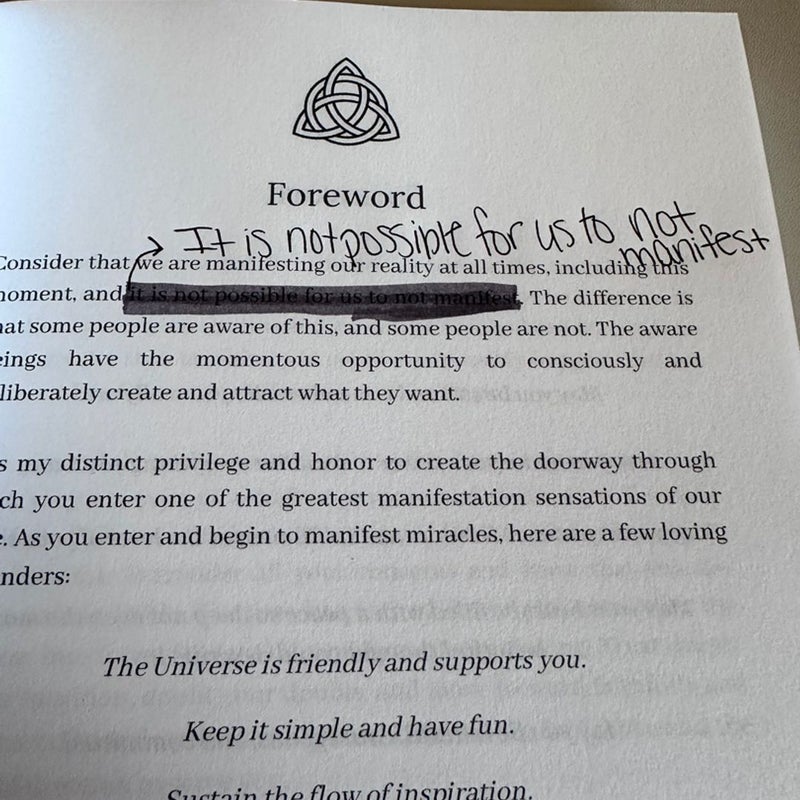 Foreword
It is not possible for us to not
manifest
Consider that we are manifesting our reality at all times, including this
moment, and it is not possible for us to not manifest. The difference is
hat some people are aware of this, and some people are not. The aware
eings have the momentous opportunity to consciously and
liberately create and attract what they want.
s my distinct privilege and honor to create the doorway through
ch you enter one of the greatest manifestation sensations of our
e. As you enter and begin to manifest miracles, here are a few loving
nders:
The Universe is friendly and supports you.
Keep it simple and have fun.
Sustain the flow of inspiration.